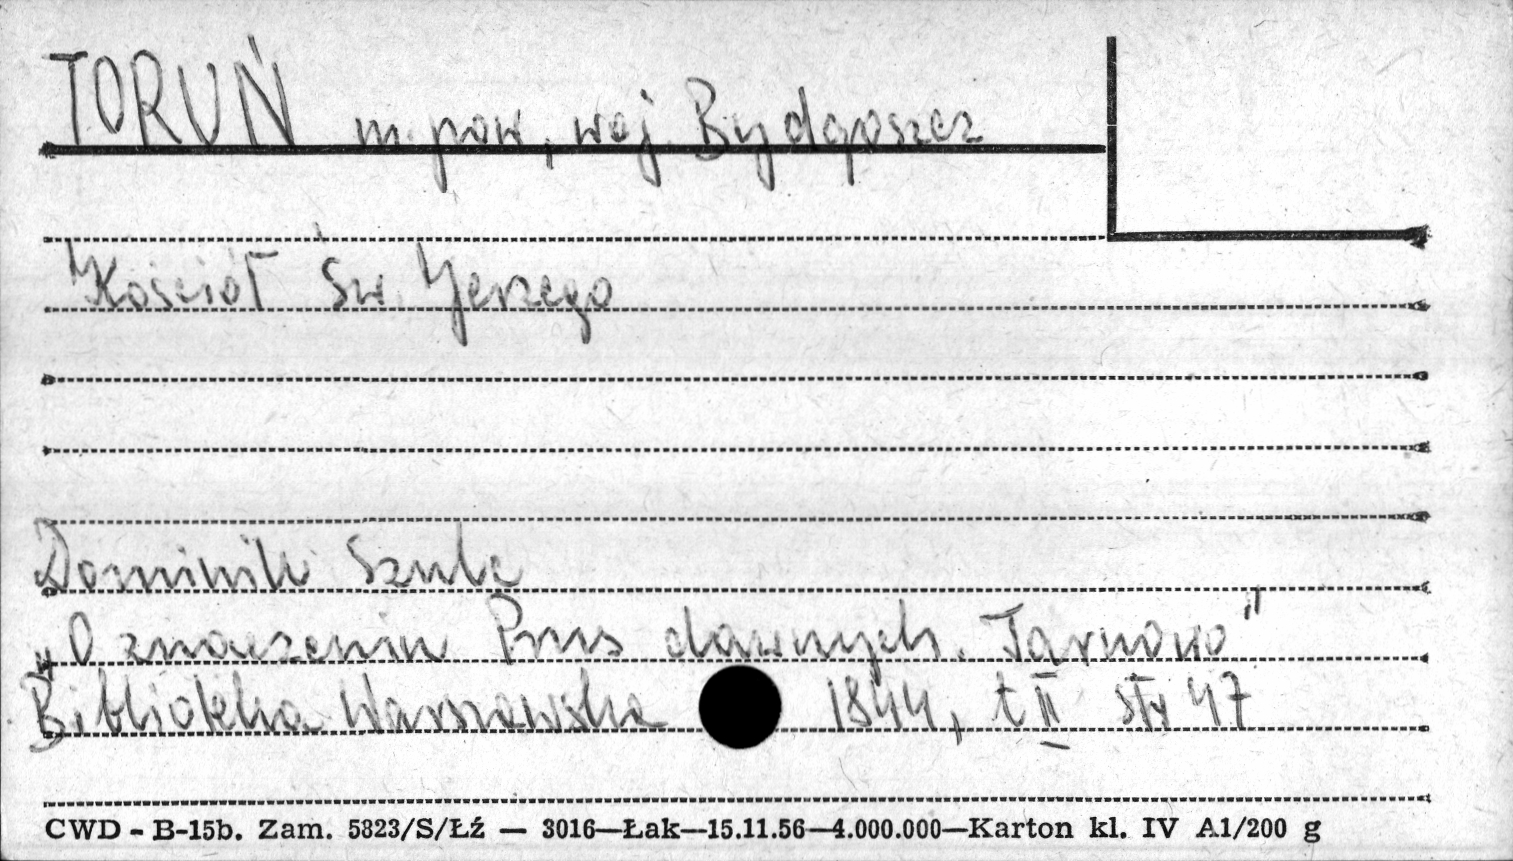 TORUŃ m. pow, woj. Bydgoszcz
Kościół Św. Jerzego
Dominik Szulc
„O znaczeniu Prus dawnych. Tarnowo"
Biblioteka Warszawska 1844, t II str 47
CWD - B-15b. Zam. 5823/S/Łź — 3016—Łak—15.11.56—4.000.000—Karton kl. IV A1/200 g